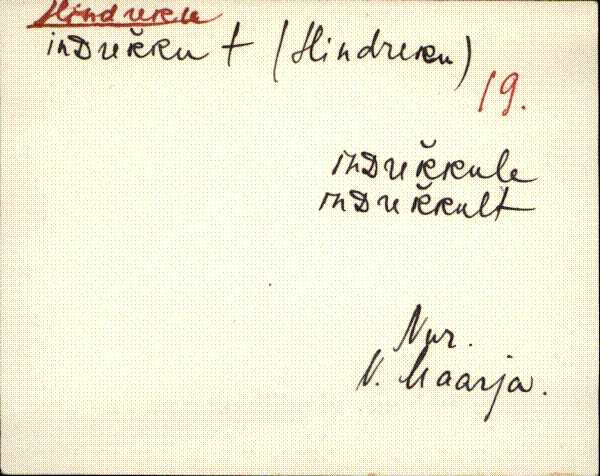 Hindreku
inDrekku t (Hindreku)
19.
inDrekkule
inDrekkult
Nur.
V. Maarja.